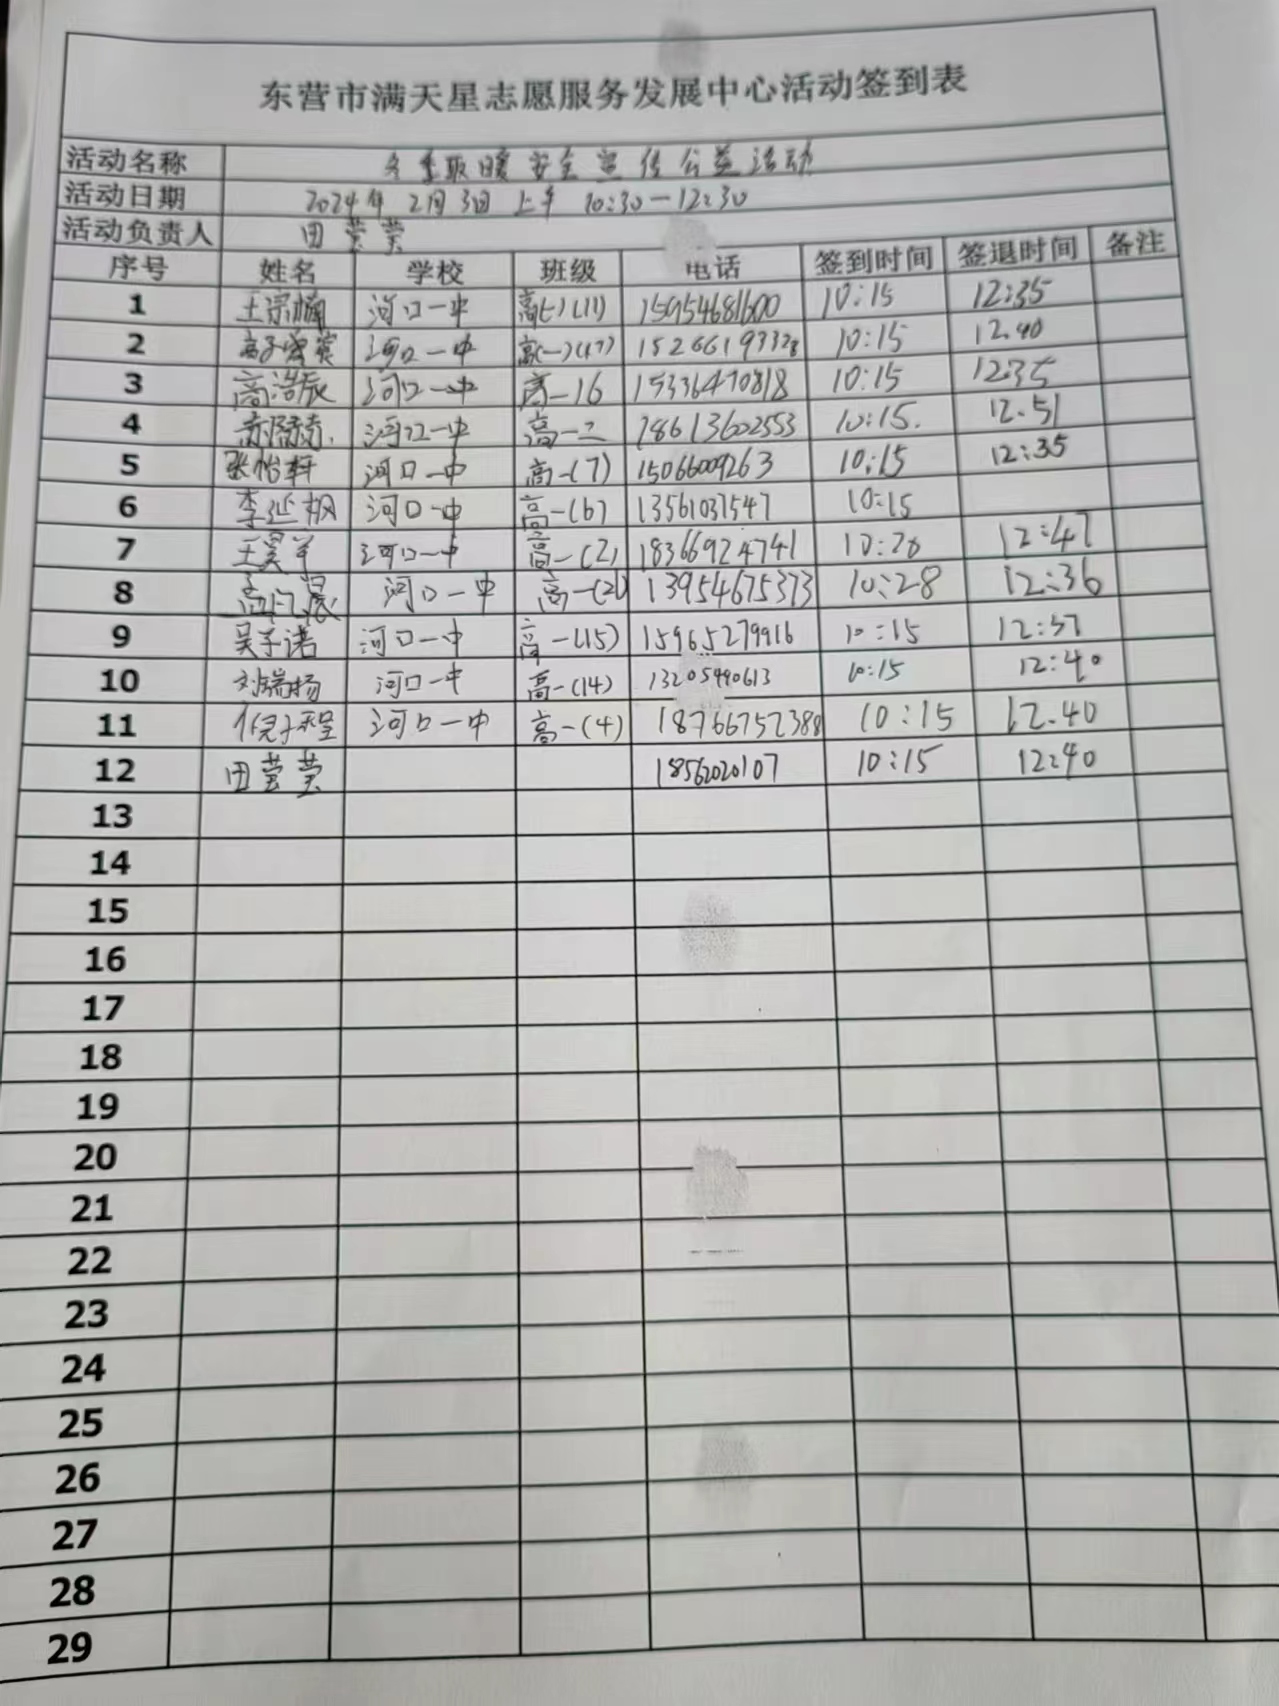 东营市满天星志愿服务发展中心活动签到表
活动名称 冬季取暖安全宣传公益活动
活动日期 2024年 2月 3日 上午 10:30—12:30
活动负责人 田莹莹
序号 姓名 学校 班级 电话 签到时间 签退时间 备注
1 王宗楠 河口一中 高(一)(11) 15954681600 10:15 12:35
2 河口一中 高(一)(17) 15266193328 10:15 12.40
3 高浩辰 河口一中 高一16 15336470818 10:15 12:35
4 河口一中 高一二 18613602553 10:15. 12.51
5 张怡轩 河口一中 高一(7) 15066009263 10:15 12:35
6 李延枫 河口一中 高一(6) 13561031547 10:15
7 王昊羊 河口一中 高一(2) 18366924741 10:28 12:47
8 河口一中 高一(2) 13954675373 10:28 12:36
9 吴子诺 河口一中 高一(15) 15965279916 10:15 12:37
10 刘瑞扬 河口一中 高一(14) 13205490613 10:15 12:40
11 倪子程 河口一中 高一(4) 18766752388 10:15 12.40
12 田莹莹 18562020107 10:15 12:40
13
14
15
16
17
18
19
20
21
22
23
24
25
26
27
28
29